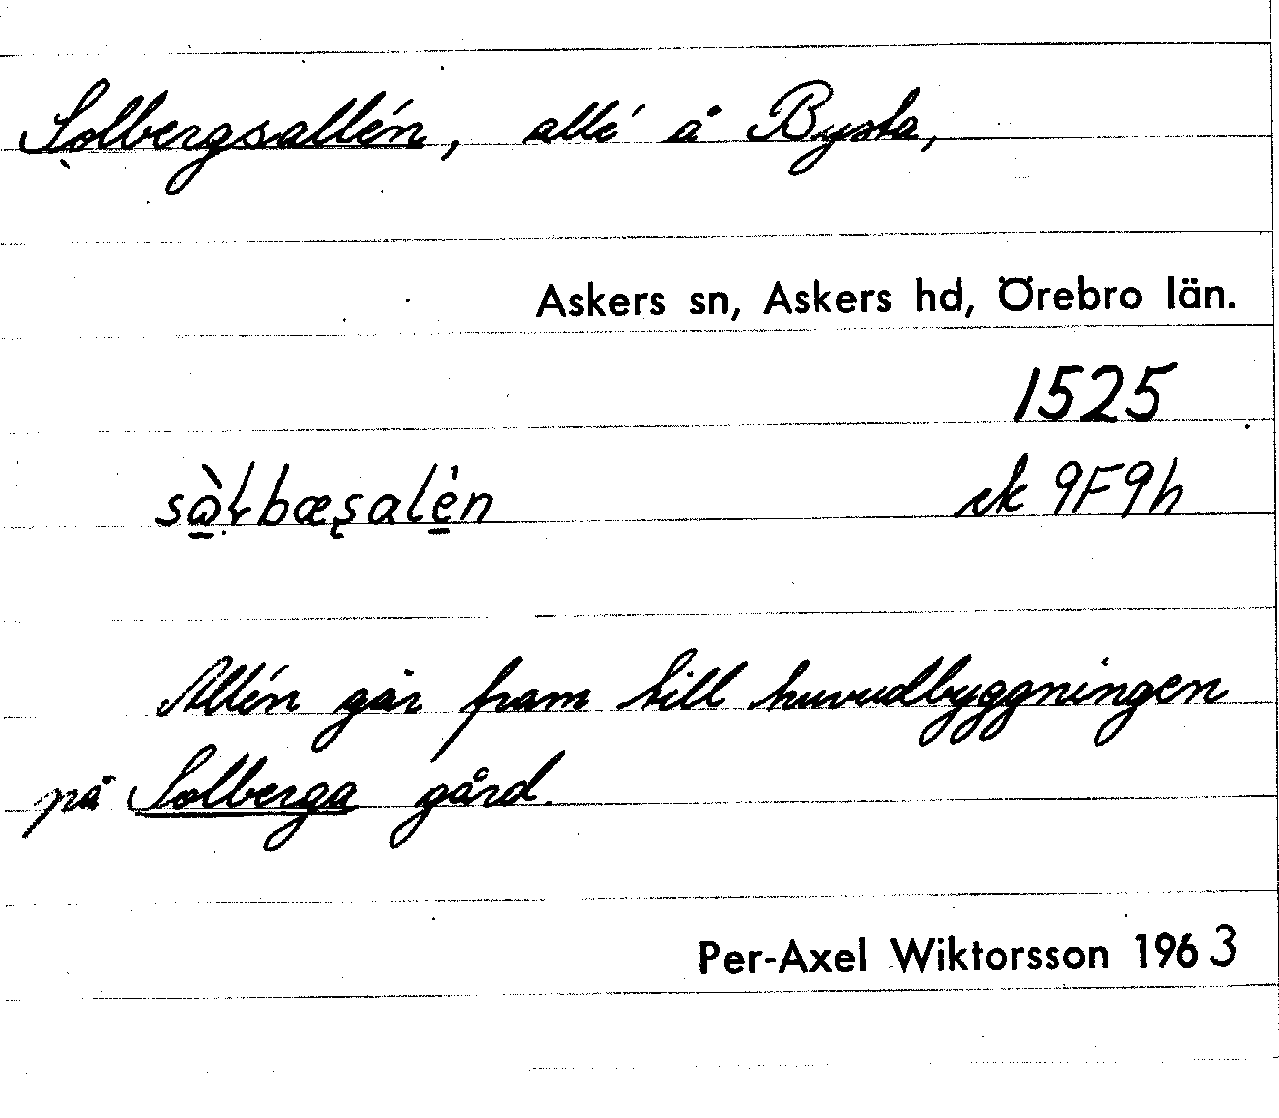 Solbergsallén, allé å Bysta,
Askers sn, Askers hd, Örebro län.
1525
ek 9F9h
Allén går fram till huvudbyggningen
på Solberga gård.
Per-Axel Wiktorsson 1963